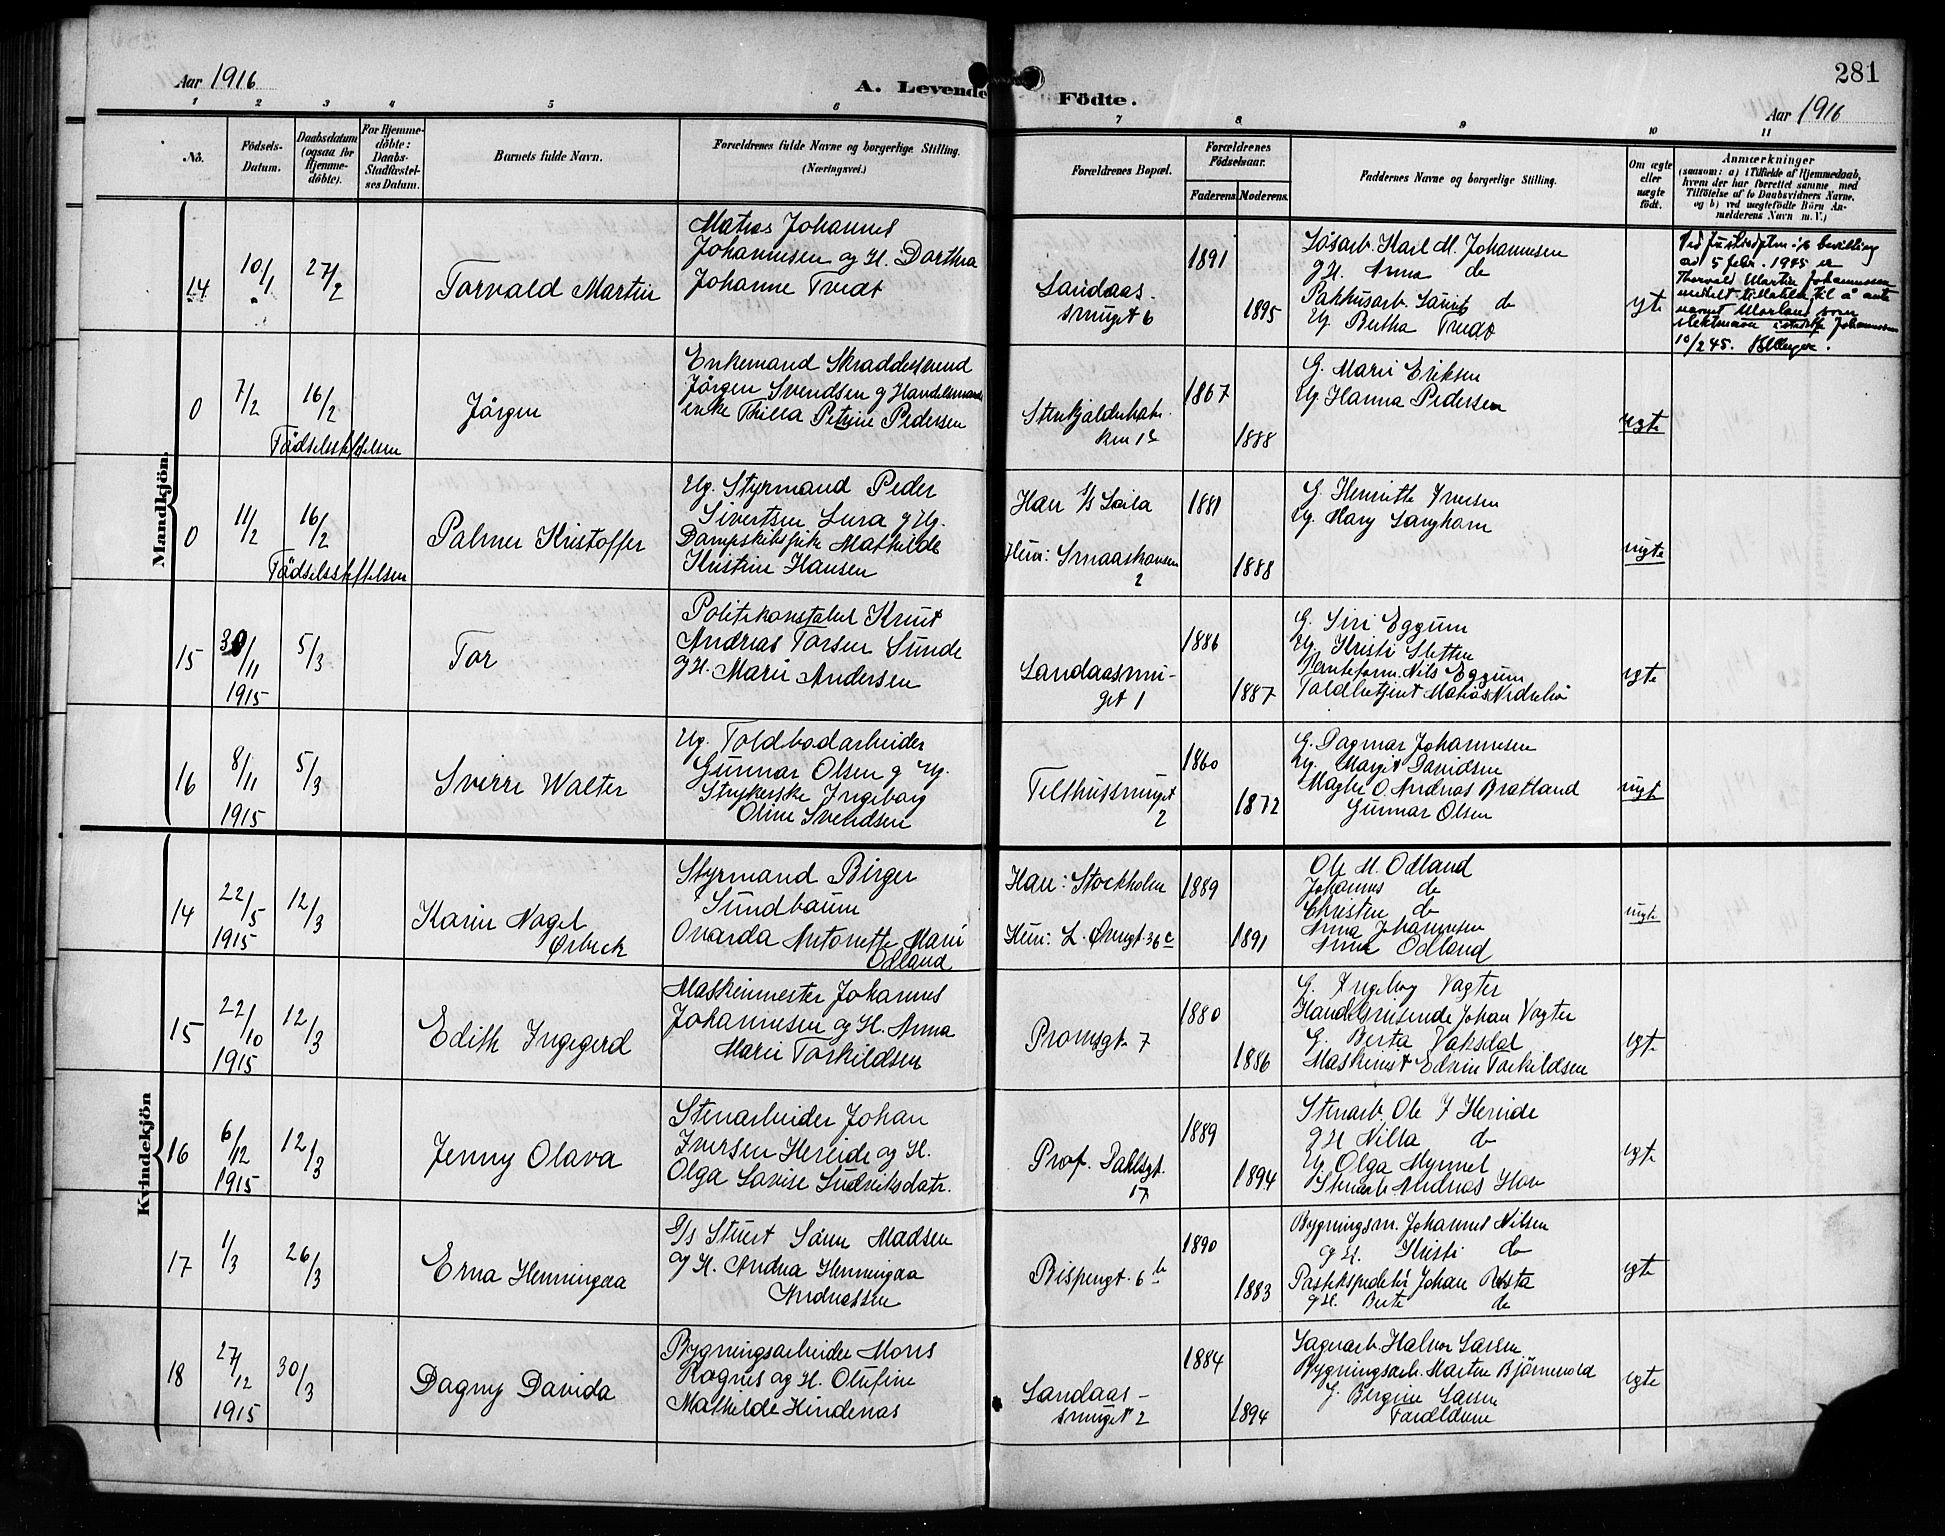 281
Aar 1916
A. Levende Födte.
Aar 1916
1 2 3 4 5 6 7 8 9 10 11
No.
Födsels-Datum.
Daabsdatum (ogsaa for Hjemme-döbte).
For Hjemme-döbte: Daabs-Stadfæstel-ses Datum.
Barnets fulde Navn.
Forældrenes fulde Navne og borgerlige Stilling. (Næringsvei.)
Forældrenes Bopæl.
Forældrenes Födselsaar.
Faderens. Moderens.
Faddernes Navne og borgerlige Stilling.
Om ægte eller uægte födt.
Anmærkninger
(saasom: a) i Tilfælde af Hjemmedaab,
hvem der har forrettet samme, med
Tilföielse af to Daabsvidners Navne.
og b) ved uægtefödte Börn An-
melderens Navn m. V.)
Mandkjön.
14 10/1 27/2
Torvald Martin
Matias Johannes
Johannesen og H. Dorthea
Johanne Tvedt
Sandaas-
smuget 6
1891
1895
Løsarb. Karl M. Johannesen
g H. Anna do
Pakhusarb. Laurits do
Ug Bertha Tvedt
ægte
Ved Justisdptm-ts bevilling
av 5 febr. 1945 er
Thorvald Martin Johannessen
meddelt tillatelse til å anta
navnet Morland som
slektsnavn istedetfor Johannessen
10/2 45.
0 7/2 16/2
Fødselsstiftelsen
Jørgen
Enkemand Skræddersvend
Jørgen Svendsen g Handelsmands
enke Thilla Petrine Pedersen
1867
1888
G. Marie Eriksen
Ug Hanna Pedersen
uegte
0 11/2 16/2
Fødselsstiftelsen
Palmer Kristoffer
Ug. Styrmand Peder
Sivertsen Lura g Ug.
Dampskibspike Mathilde
Kristine Hansen
Han S/S Laila
Hun: Smaaskansen
2
1881
1888
G. Henriette Iversen
Ug. Mary Langhorn
uegte
15 30/11 5/3
1915
Tor
Politikonstabel Knut
Andreas Torsen Sunde
g H. Marie Andersen
Sandaassmu-
get 1
1886
1887
G. Siri Eggum
Ug Kristi Sletten
Nils Eggum
Toldbetjent Matias Nedrebø
egte
16 8/11 5/3
1915
Sverre Walter
Ug. Toldbodarbeider
Gunnar Olsen g Ug.
Strykerske Ingeborg
Oline Svendsen
Telthussmuget
2
1860
1872
G. Dagmar Johannesen
Ug. Margit Davidsen
Mægler O. Andreas Bratland
Gunnar Olsen
uegte
Kvindekjön
14 22/5 12/3
1915
Karin Nagel
Ørbeck
Styrmand Birger
Sundbaum
Ovarda Antonette Marie
Odland
Han: Stockholm
Hun: L. Øvregt. 36 c
1889
1891
Ole M. Odland
Johannes do
Christen do
Anna Johannesen
Anna Odland
uegte
15 22/10 12/3
1915
Edith Ingegerd
Maskinmester Johannes
Johannesen og H. Anna
Marie Torkildsen
Promsgt. 7
1880
1886
G. Ingeborg Vagter
Handelsreisende Johan Vagter
G. Berta Vaksdal
Maskinist Edvin Torkildsen
egte
16 6/12 12/3
1915
Jenny Olava
Stenarbeider Johan
Iversen Hereide og H.
Olga Lovise Ludviksdatr.
Prof. Dahlsgt.
17
1889
1894
Stenarb Ole I Hereide
g H Nilla do
Ug Olga Myrmel
Stenarb. Andreas Hov
egte
17 1/3 26/3
Erna Henningaa
D/s Stuert Sørin Madsen
og H. Andrea Henningaa
Andreassen
Bispengt. 6 b
1890
1883
Bygningsm. Johannes Nilsen
og H. Kristi do
Postekspeditør Johan Røsta
g H. Berte do
egte
18 27/12 30/3
1915
Dagny Davida
Bygningsarbeider Mons
Rognes og H. Olufine
Mathilde Hindenas
Sandaas-
smuget 2
1884
1894
Sagerarb. Halvor Larsen
Bygningsarb. Morten Bjørnevold
G. Bergine Larsen
Forældrene
egte